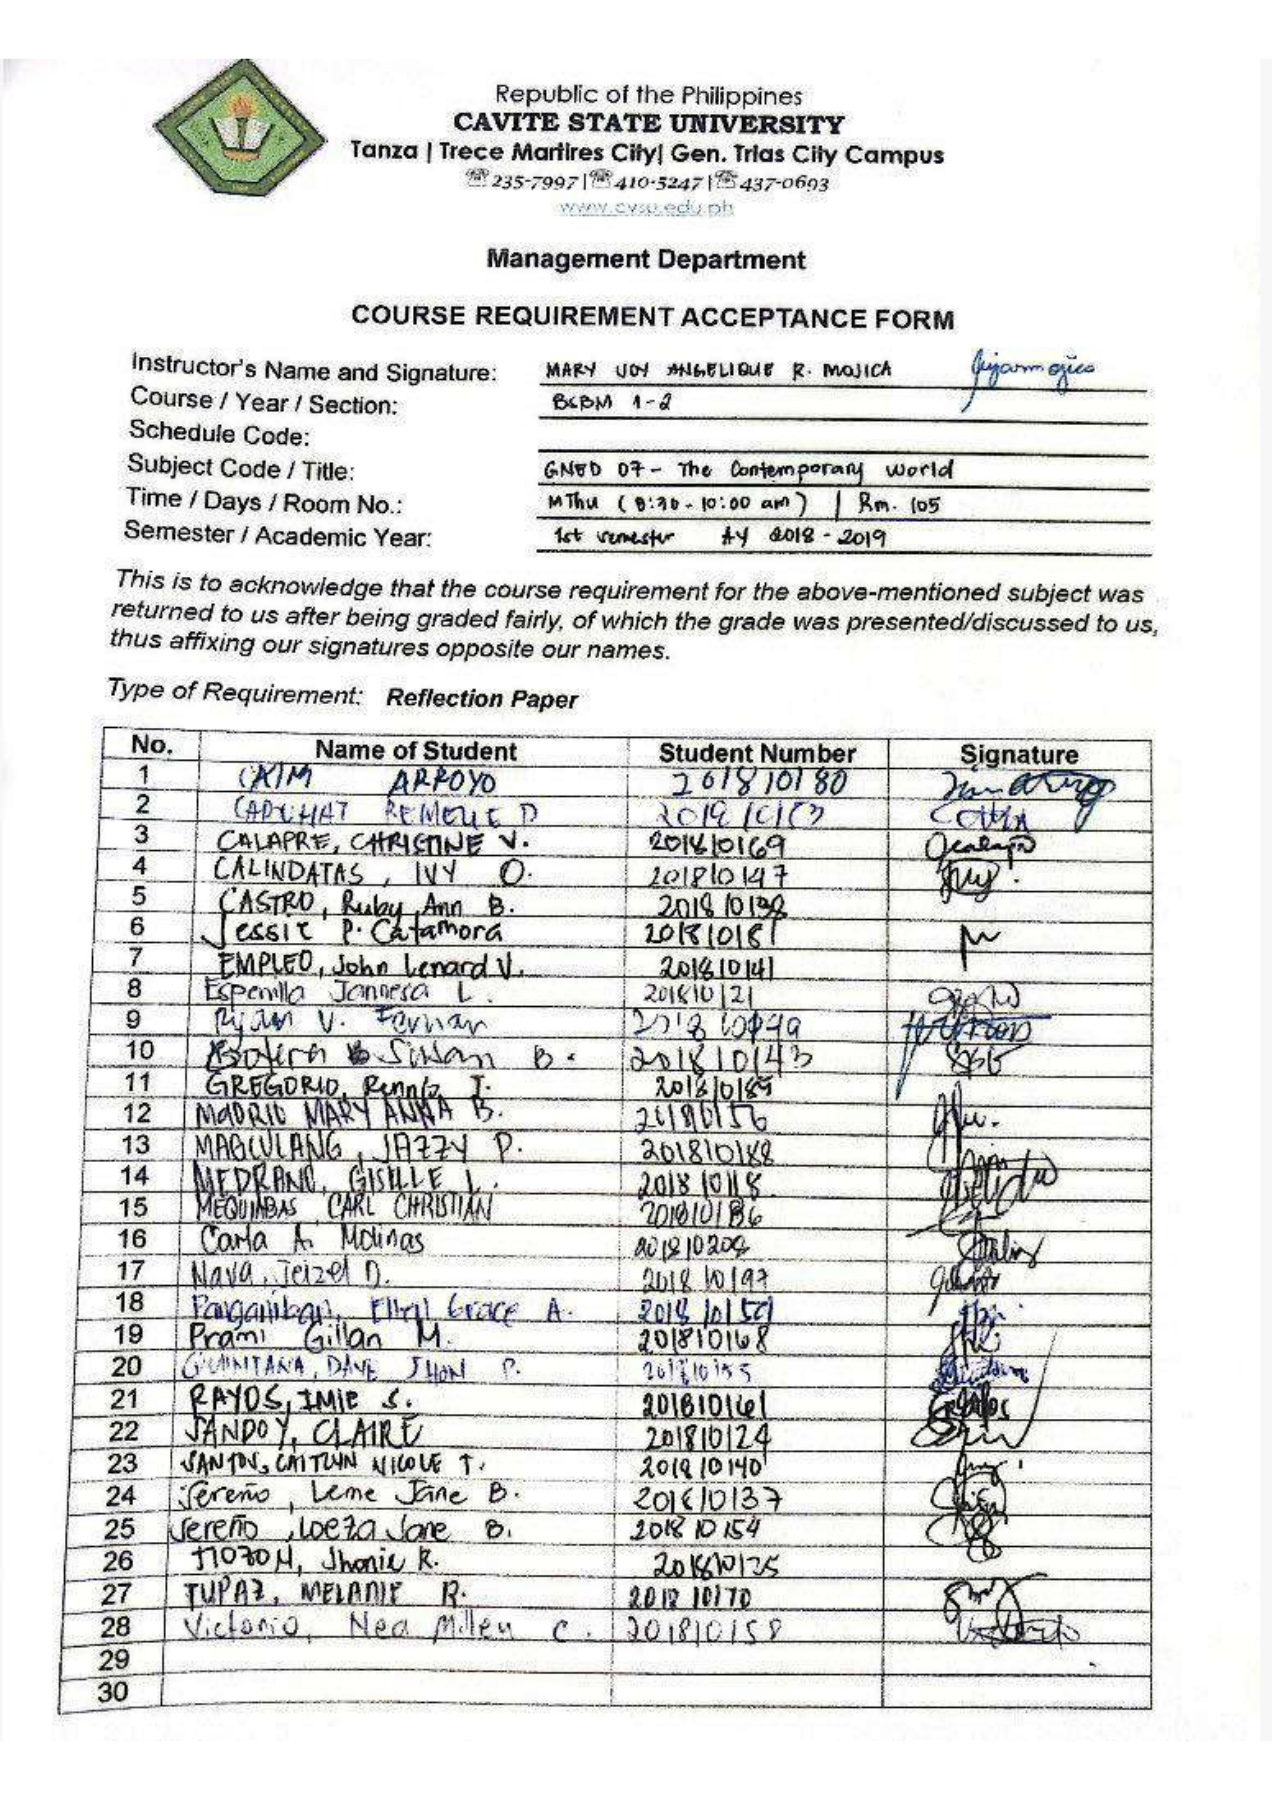 Republic of the Philippines
CAVITE STATE UNIVERSITY
Tanza | Trece Martires City| Gen. Trias City Campus
☏ 235-7997 |☏ 410-5247 |☏ 437-0693
www.cvsu.edu.ph
Management Department
COURSE REQUIREMENT ACCEPTANCE FORM
Instructor's Name and Signature: MARY JOY ANGELIQUE R. MOJICA
Course / Year / Section: BSBM 1-2
Schedule Code:
Subject Code / Title: GNED 07 - The Contemporary World
Time / Days / Room No.: MThu ( 8:30 - 10:00 am) | Rm. 105
Semester / Academic Year: 1st semester AY 2018 - 2019
This is to acknowledge that the course requirement for the above-mentioned subject was
returned to us after being graded fairly, of which the grade was presented/discussed to us,
thus affixing our signatures opposite our names.
Type of Requirement: Reflection Paper
No. Name of Student Student Number Signature
1 ARROYO 201810180
2
3 CALAPRE, CHRISTINE V. 201810169
4 CALINDATAS, IVY O. 201810147
5 CASTRO, Ruby Ann B. 201810138
6 Jessie P. Catamora 201810181
7 EMPLEO, John Lenard V. 201810141
8 Espenilla Jannesa L. 201810121
9 Ryan V.
10 Susan B. 201810143
11 GREGORIO, T.
12 MADRID MARY ANNA B.
13 MAGCULANG, JAZZY P. 201810188
14 MEDRANO, GISELLE L. 201810118
15 MEQUIABAS CARL CHRISTIAN 201810186
16 Carla A. Molinas 201810208
17 Nava, Jeizel D. 201810197
18 Panganiban, Grace A.
19 Prami Gillan M. 201810168
20 QUINTANA, DAVE JHON P. 201810155
21 RAYOS, IMIE S. 201810161
22 SANDOY, CLAIRE 201810124
23 SANTOS, CAITLYN NICOLE T. 201810140
24 Sereño, Leme Jane B. 201810137
25 Sereño, Loeza Jane B. 201810154
26 R.
27 TUPAZ, MELANIE R. 201810170
28 Victorio, Nea Milen C. 201810158
29
30